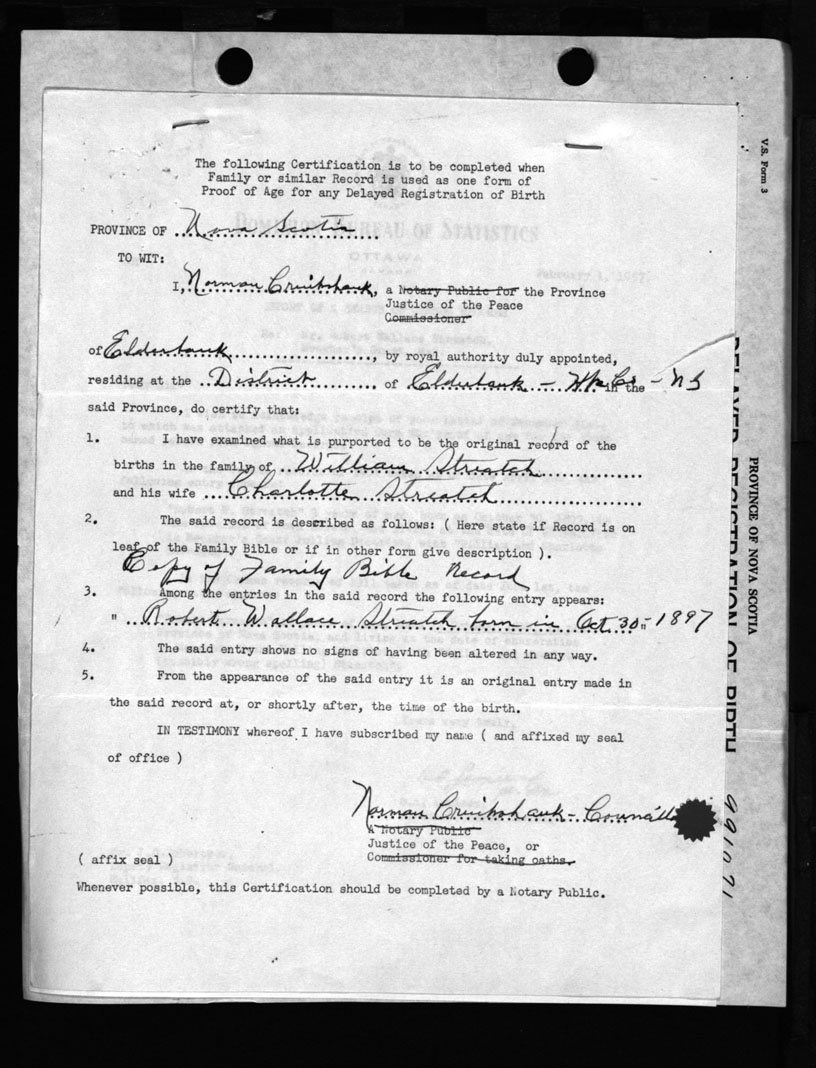 The following Certification is to be completed when
Family or similar Record is used as one form of
Proof of Age for any Delayed Registration of Birth
DOMINION BUREAU OF STATISTICS
OTTAWA
PROVINCE OF Nova Scotia
TO WIT:
I, Norman Cruikshank, a Notary Public for the Province
Justice of the Peace
Commissioner
of Elderbank, by royal authority duly appointed,
residing at the District of Elderbank - Hfx Co in the - NS
said Province, do certify that:
1. I have examined what is purported to be the original record of the
births in the family of William Streatch
and his wife Charlotte Streatch
2. The said record is described as follows: ( Here state if Record is on
leaf of the Family Bible or if in other form give description ).
Copy of Family Bible Record
3. Among the entries in the said record the following entry appears:
" Robert Wallace Streatch born in Oct 30 " - 1897
4. The said entry shows no signs of having been altered in any way.
5. From the appearance of the said entry it is an original entry made in
the said record at, or shortly after, the time of the birth.
IN TESTIMONY whereof I have subscribed my name ( and affixed my seal
of office )
Norman Cruikshank - Councillor
A Notary Public
Justice of the Peace, or
Commissioner for taking oaths.
( affix seal )
Whenever possible, this Certification should be completed by a Notary Public.
V.S. Form 3
PROVINCE OF NOVA SCOTIA
DELAYED REGISTRATION OF BIRTH